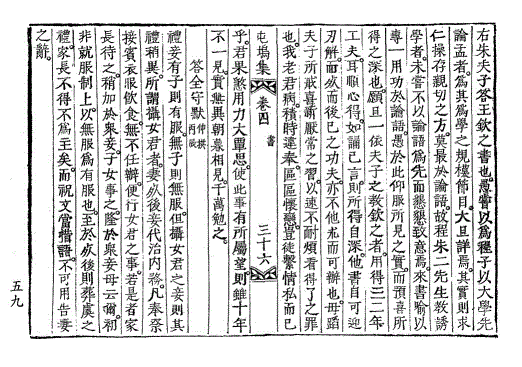 右朱夫子答王欽之書也愚嘗以爲程子以大學先
論孟者爲其爲學之規模節目大且詳焉其實則求
仁操存親切之方莫最於論語故程朱二先生敎誘
學者未嘗不以論語爲先而懇懇致意焉來書喩以
專一用功於論語愚於此仰服所見之實而預喜所
得之深也願且一依夫子之敎欽之者用得三二年
工夫耳順心得如誦己言則所得自深他書自可迎
刃解而然而後已之功夫亦不他求而可辦也毋蹈
夫子所戒喜新厭常之習以速不耐煩看得了之罪
也我老君病積時違奉區區懷戀豈徒繫情私而已
屯塢集 卷四 書 三十六
乎君果煞用力大覃思使此事有所屬望則雖十年
不一見實無異朝暮相見千萬勉之
答全守默 丙辰
禮妾有子則有服無子則無服但攝女君之妾則其
禮稍異所謂攝女君者妻歿後妾代治內務凡奉祭
接賓衣服飮食無不任辦便行女君之事若是者家
長待之稍加於衆妾子女事之隆於衆妾母云爾初
非就服制上以無服爲有服也至於歿後則葬虞之
禮家長不得不爲主矣而祝文當借語不可用告妻
之辭
五九